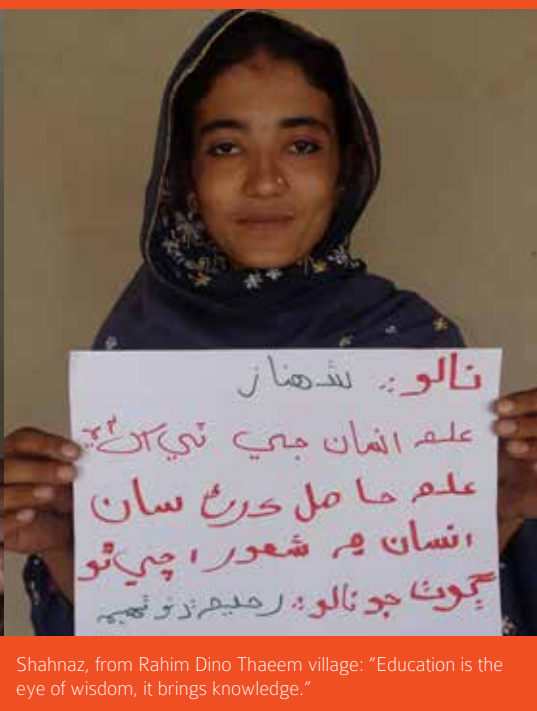 نالو: شهناز
علم انسان جي ٽي
علم حاصل ڪرڻ سان
انسان ۾ شعور اچي ٿو
ڳوٺ جو نالو: رحيم ڏنو ٿهيم
Shahnaz, from Rahim Dino Thaeem village: “Education is the
eye of wisdom, it brings knowledge.”